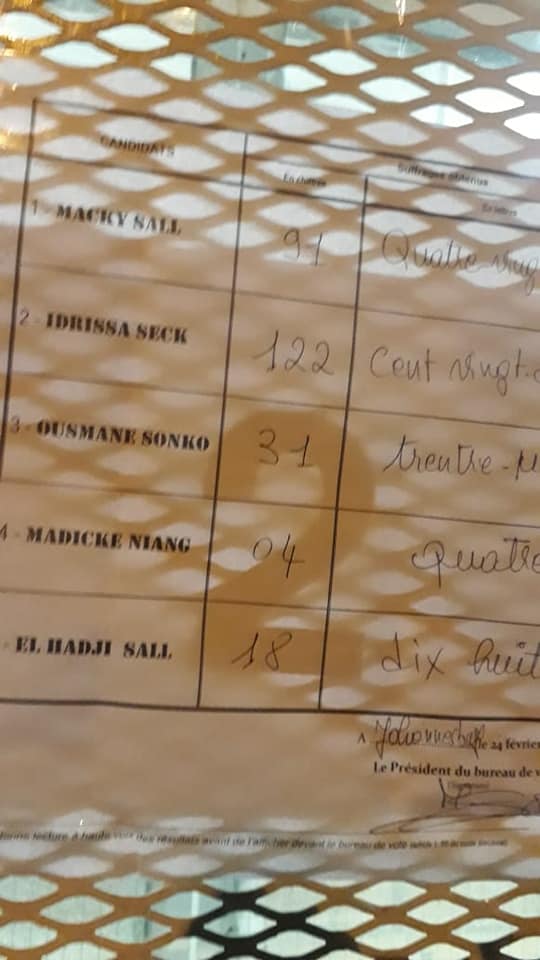 CANDIDATS
Suffrages obtenus
En chiffres
En lettres
1 - MACKY SALL 91 Quatre-ving
2 - IDRISSA SECK 122 Cent vingt-d
3 - OUSMANE SONKO 31 trente-u
4 - MADICKE NIANG 04 quatre
- EL HADJI SALL 18 dix huit
2
A Johannesburg le 24 février
Le Président du bureau de v
lecture à haute voix des résultats avant de l'afficher devant le bureau de vote